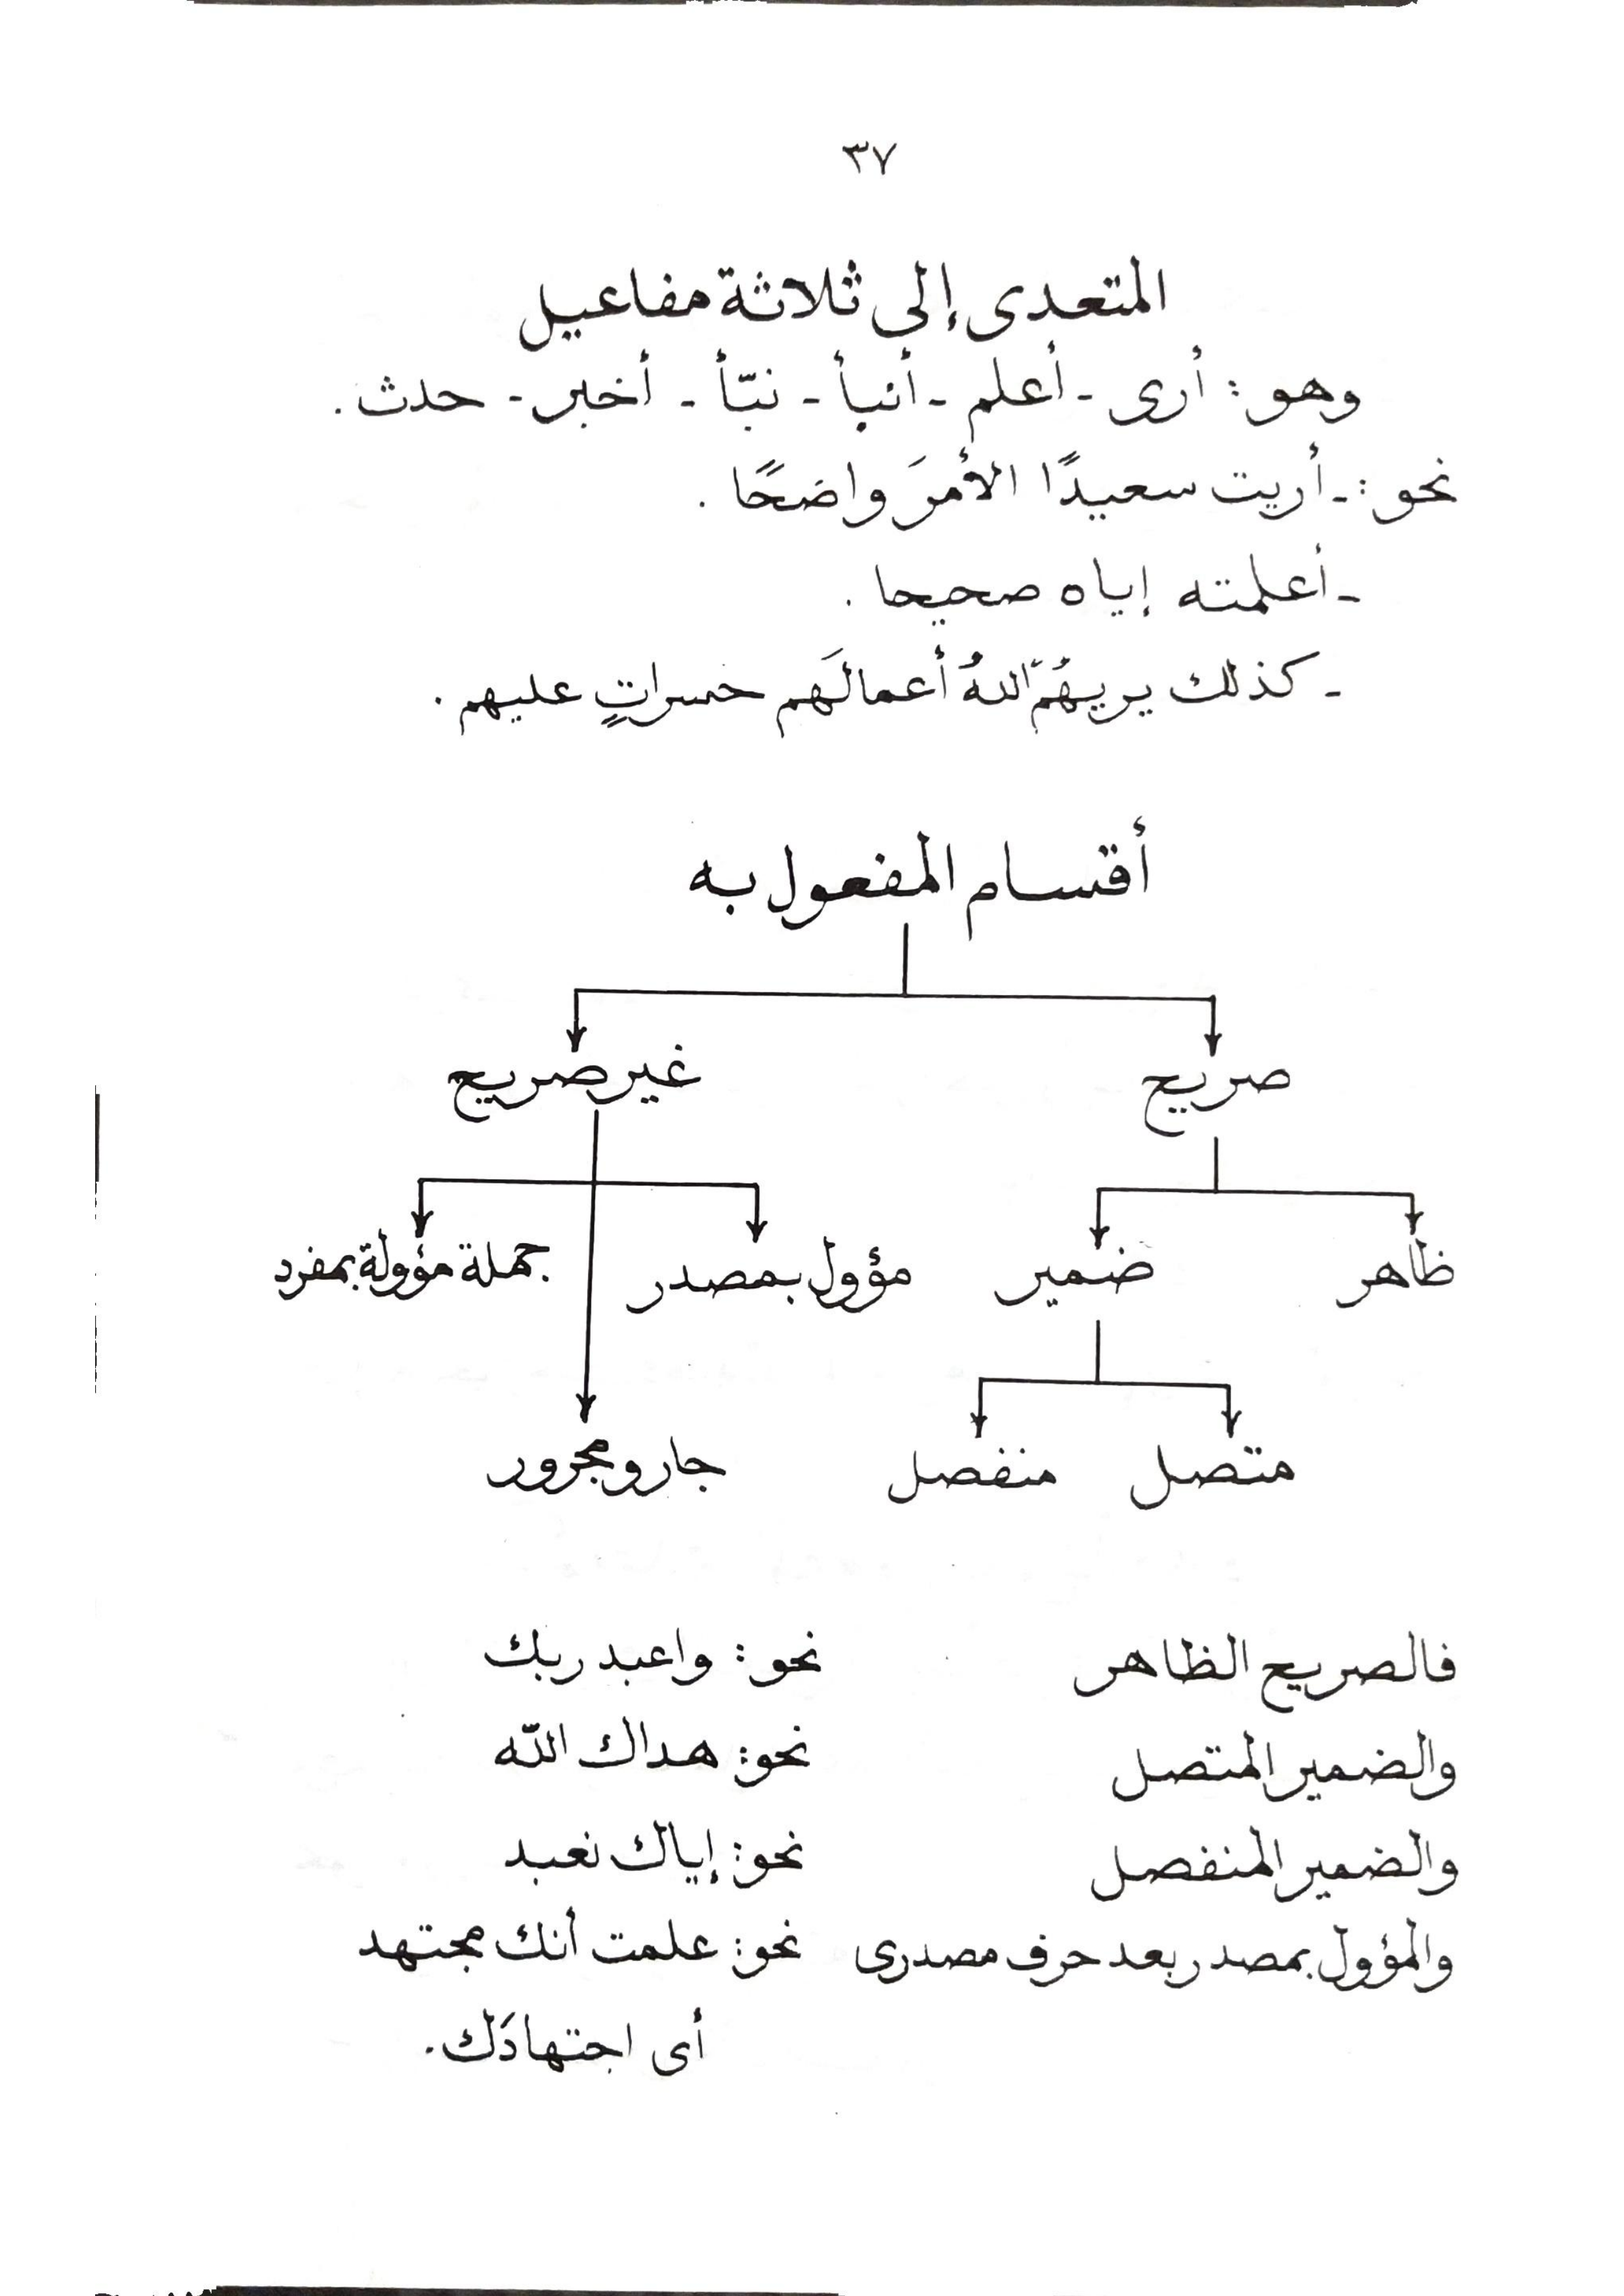 ٣٧
المتعدى إلى ثلاثة مفاعيل
وهو: أرى - أعلم - أنبأ - نبّأ - أخبر - حدث.
نحو: - أريت سعيدًا الأمرَ واضحًا.
- أعلمته إياه صحيحا.
- كذلك يريهُمُ اللهُ أعمالَهم حسراتٍ عليهم.
أقسام المفعول به
صريح غير صريح
ظاهر ضمير مؤول بمصدر جملة مؤولة بمفرد
متصل منفصل جار ومجرور
فالصريح الظاهر نحو: واعبد ربك
والضمير المتصل نحو: هداك الله
والضمير المنفصل نحو: إياك نعبد
والمؤول بمصدر بعد حرف مصدرى نحو: علمت أنك مجتهد
أى اجتهادَك.